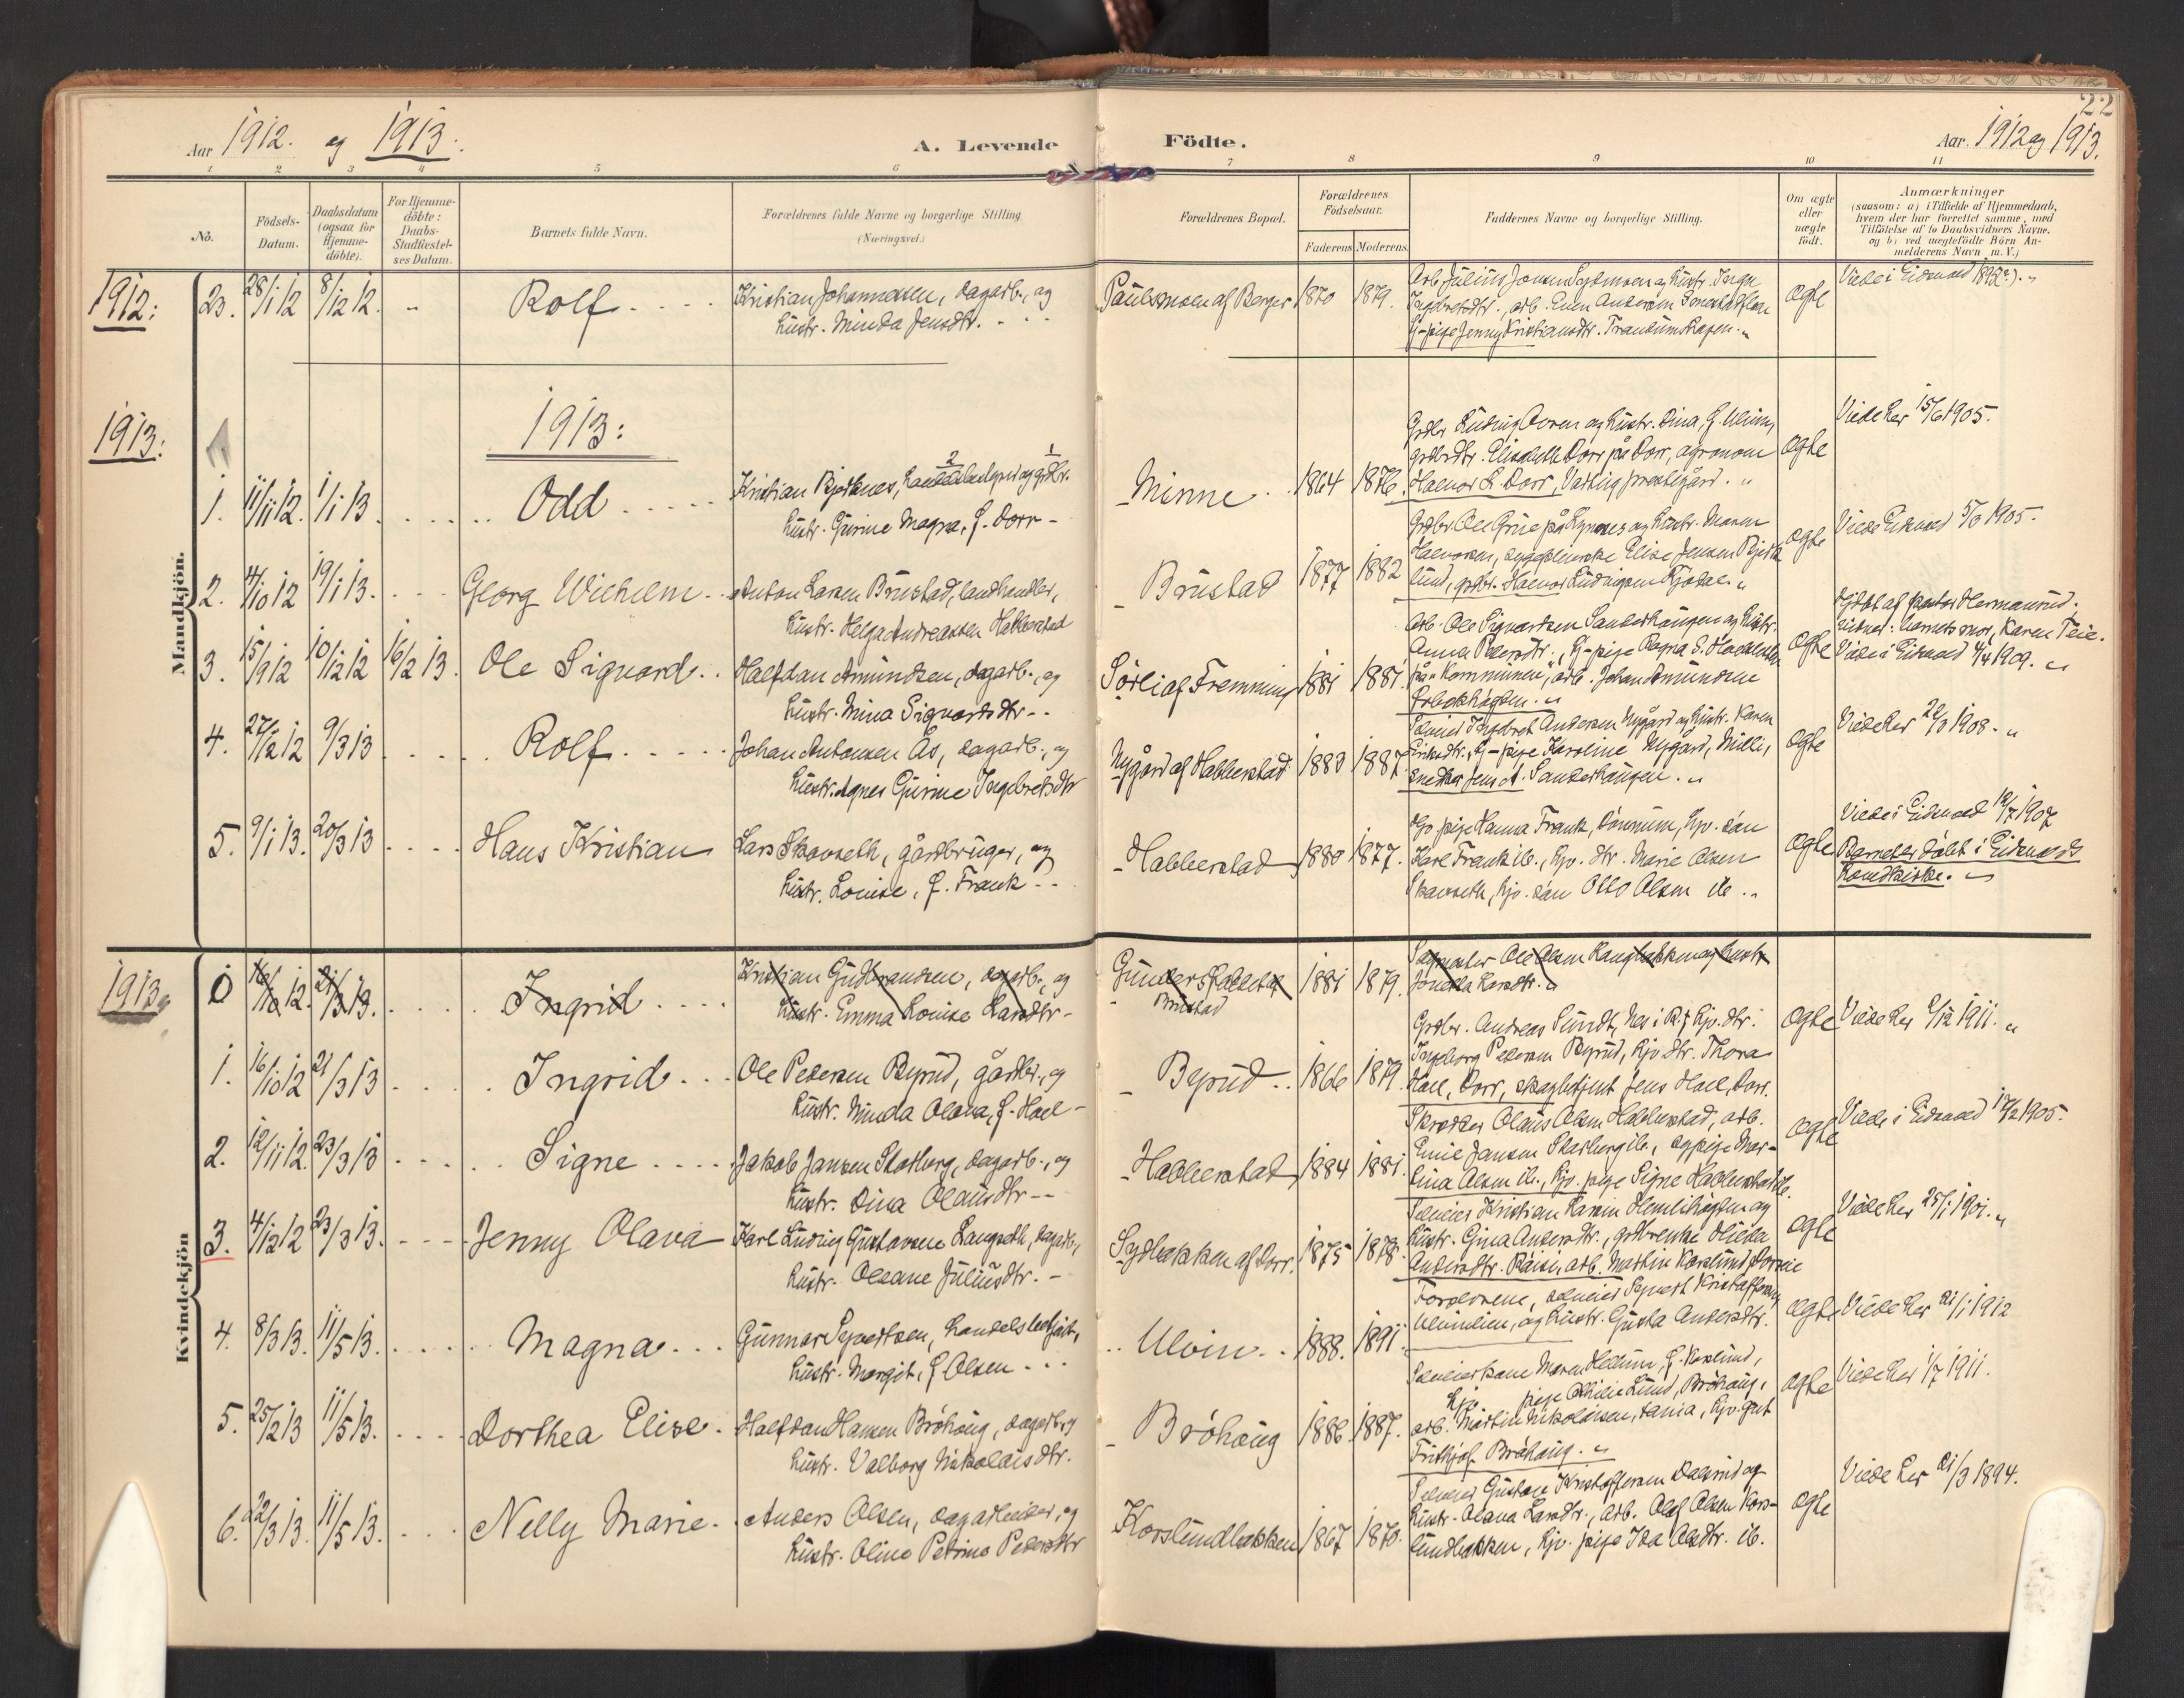 22
Aar 1912. og 1913.
A. Levende
Födte.
Aar. 1912 og 1913.
1 2 3 4 5 6 7 8 9 10 11
No.
Födsels-
Datum.
Daabsdatum
(ogsaa for
Hjemme-
döbte).
For Hjemme-
döbte:
Daabs-
Stadfæstel-
ses Datum.
Barnets fulde Navn.
Forældrenes fulde Navne og borgerlige Stilling
(Næringsvei.)
Forældrenes Bopæl.
Forældrenes
Födselsaar.
Faderens Moderens
Faddernes Navne og borgerlige Stilling.
Om ægte
eller
uægte
födt.
Anmærkninger
(saasom: a) i Tilfælde af Hjemmedaab,
hvem der har forrettet samme, med
Tilföielse af to Daabsvidners Navne.
og b) ved uægtefödte Börn An-
melderens Navn m. V.)
Mandkjön.
1912:
23. 28/1 12 8/12 12. „ Rolf
Kristian Johannessen, dagarb., og
hustr. Minda Jensdtr.
Paulsmoen af Berger 1870 1879.
G-pige Jenny Kristiansdtr.
ægte
Viede i Eidsvold
1913:
1913:
1. 11/11 12. 1/1 13. Odd
Kristian Bjørknes, og grdbr.
hustr. Gurine Magna, f. Dorr
Minne 1864 1876.
Grdbr Ludvig Dorr og hustr. Dina, f. Ulvin,
grdbrdtr. Elisabeth Dorr på Dorr, agronom
Halvor L. Dorr, prestegård. „
ægte
Viede her 15/6 1905.
2. 4/10 12 19/1 13. Georg Wilhelm
Anton Larsen Brustad, landhandler,
hustr. Helga Andreassen Habberstad
Brustad 1877 1882
hustr. Maren
Halvorsen, Elise Jensen
ægte
Viede Eidsvold 5/3 1905.
3. 15/9 12 10/12 12 16/2 13. Ole Sigvard
Halfdan Amundsen, dagarb., og
hustr. Mina Sigvartsdtr
Sørli af Fremming 1881 1881.
Arb. Ole Sigvartsen Sanderhaugen og hustr.
Anna Pedersdtr., G-pige Ragna S.
på "Kommunen", arb. Johan Amundsen
ægte
Hjdbt af pastor Hermanrud.
vidner: barnets mor, Karen Teie.
Viede i Eidsvold 4/4 1909. „
4. 27/12 12 9/3 13 Rolf
Johan Antonsen Ås, dagarb., og
hustr. Agnes Gurine Ingebretsdtr
Nygård af Habberstad 1883 1887.
Selveier Ingebret Andersen Nygård og hustr. Karen
G-pige Karoline Nygård, Milli,
snedker Jens A. Sanderhaugen. „
ægte
Viede her 22/3 1908. „
5. 9/1 13. 20/3 13 Hans Kristian
Lars Skavseth, gårdbruger, og
hustr. Louise, f. Frank
Habberstad 1880 1877.
pige Hanna Frank, Dønnum, hjv. søn
Karl Frank ib., hjv. dtr. Marie Olsen
Skavseth, hjv. søn Otto Olsen ib. „
ægte
Viede i Eidsvold 12/7 1907
Barnet er døbt i Eidsvolds
hovedkirke. „
Kvindekjön
1913.
0 16/10 12. 21/3 13. Ingrid
Kristian Gudbrandsen, dagarb., og
hustr. Emma Louise Larsdtr
Brustad
1881 1879.
Ole Olsen Haugbakken og hustr
Larsdtr. „
1. 16/10 12 21/3 13 Ingrid
Ole Pedersen Byrud, gårdbr., og
hustr. Minda Olava, f. Hoel
Byrud 1866 1879.
Grdbr. Andreas Sundt, Nes i R., hjv. dtr.
Ingeborg Pedersen Byrud, hjv. dtr. Thora
Hoel, Dorr, Jens Hoel, Dorr.
ægte
Viede her 9/12 1911. „
2. 12/11 12. 23/3 13 Signe
Jakob Jansen Skarberg, dagarb., og
hustr. Dina Olausdtr
Habberstad 1884 1881.
Skrædder Olaus Olsen Habberstad, arb.
Emil Jansen Skarberg ib., sypige Mar-
tina Olsen ib., hjv. pige Signe Habberstad ib.
ægte
Viede i Eidsvold 17/2 1905.
3. 4/12 12 23/3 13. Jenny Olava
Karl Ludvig Gustavsen Langseth, dagarb.,
hustr. Oleane Juliusdtr.
Sydbakken af Dorr. 1875 1878
Selveier Kristian Larsen og
hustr. Gina Andersdtr.,
Andersdtr. Råsin, arb. Martin Korslund,
ægte
Viede her 25/1 1901. „
4. 8/3 13. 11/5 13. Magna
Gunnar Syvertsen, handelsbetjent,
hustr. Margit, f. Olsen
Ulvin 1888. 1891.
Forældrene, selveier Syvert Kristoffersen
Ulvinlien, og hustr. Gusta Andersdtr.
ægte
Viede her 21/1 1912
5. 25/2 13 11/5 13. Dorthea Elise.
Halfdan Hansen Bröhaug, dagarb. og
hustr. Valborg Nikolaisdtr.
Bröhaug 1886 1887.
Selveierkone Maren Hellum, f. Korslund,
hjv. pige Othilie Lund, Bröhaug,
arb. Martin Nikolaisen, hjv. gut
Frithjof Bröhaug. „
ægte
Viede her 1/7 1911.
6. 22/3 13 11/5 13. Nelly Marie.
Anders Olsen, dagarbeider, og
hustr. Oline Petrine Pedersdtr
Korslundbakken 1867 1870.
Selveier Gustav Kristoffersen Dalsrud og
hustr. Olava Larsdtr., arb. Olaf Olsen Kors-
lundbakken, hjv. pige Ida Olsdtr. ib.
ægte
Viede her 21/3 1894.